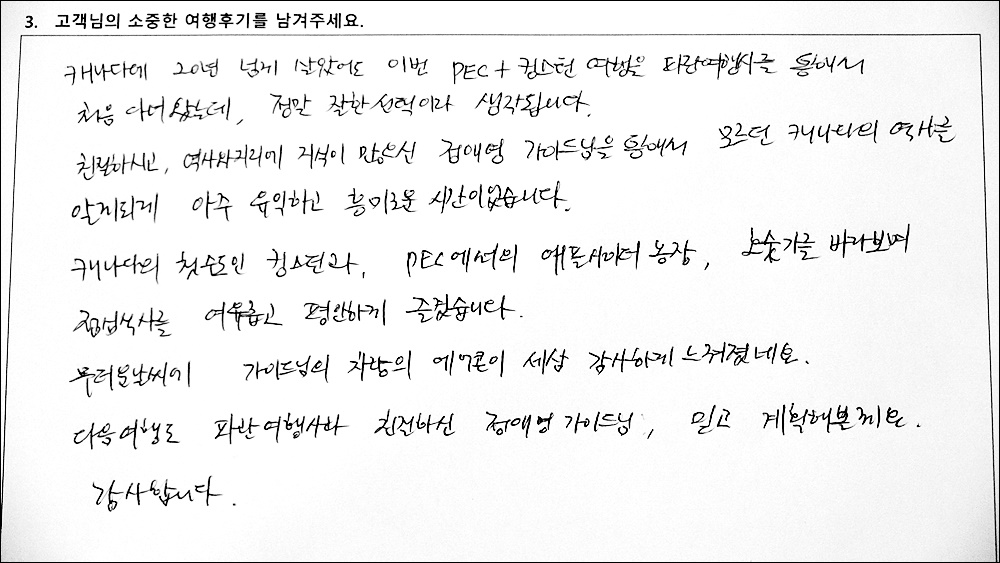 3. 고객님의 소중한 여행후기를 남겨주세요.
캐나다에 20년 넘게 살았어도 이번 PEC + 킹스턴 여행을 파란여행사를 통해서
처음 다녀왔는데, 정말 잘한 선택이라 생각됩니다.
친절하시고, 역사와지리에 지식이 많으신 정애영 가이드님을 통해서 모르던 캐나다의 역사를
알게되게 아주 유익하고 흥미로운 시간이었습니다.
캐나다의 첫수도인 킹스턴과, PEC에서의 애플사이더 농장, 호숫가를 바라보며
점심식사를 여유롭고 평안하게 즐겼습니다.
무더운날씨에 가이드님의 차량의 에어콘이 세삼 감사하게 느껴졌네요.
다음여행도 파란여행사와 친절하신 정애영 가이드님, 믿고 계획해볼께요.
감사합니다.